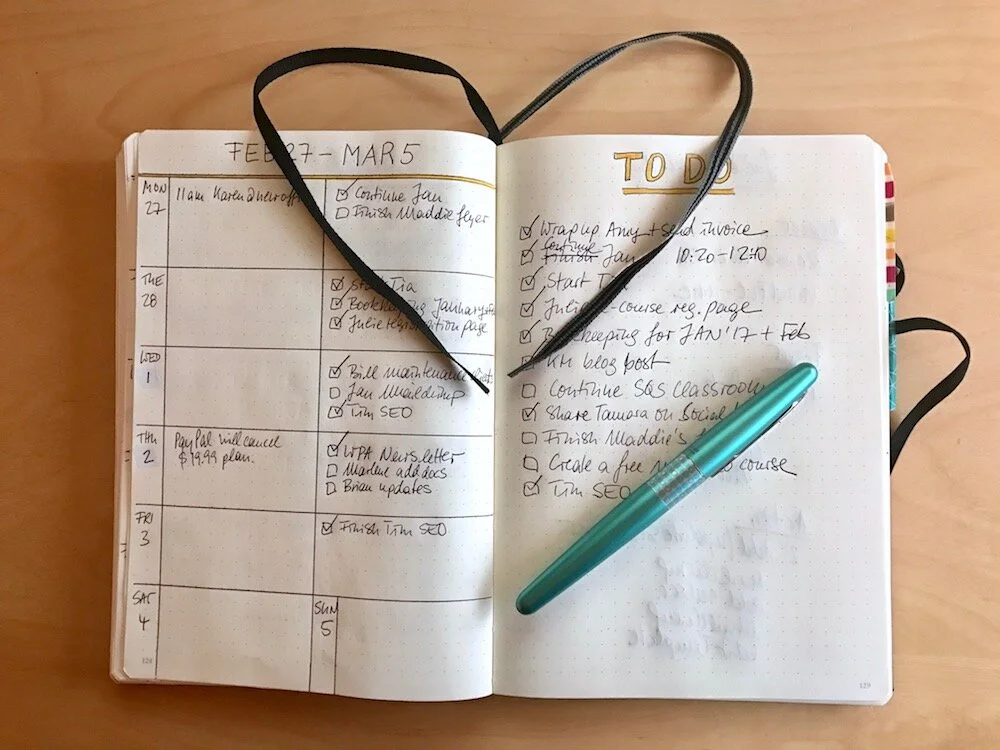 FEB 27 - MAR 5
MON
27
11am Karen @ new
☑ Continue Jan
☐ Finish Maddie flyer
TUE
28
☑ Start Tia
☑ Bookkeeping January
☑ Julie registration page
WED
1
☑ Bill maintenance
☐ Jan Maildrop
☑ Tim SEO
THU
2
PayPal will cancel
$19.99 plan.
☑ WPA Newsletter
☐ Marlene add docs
☐ Brian updates
FRI
3
☑ Finish Tim SEO
SAT
4
SUN
5
128
TO DO
☑ Wrap up Amy + send invoice
☑ Continue Finish Jan 10:20-12:40
☑ Start Tia
☑ Julie e-course reg. page
☑ Bookkeeping for JAN '17 + Feb
KM blog post
☐ Continue SQS Classroom
☑ Share Tamara on Social
☐ Finish Maddie's
☐ Create a free course
☑ Tim SEO
129